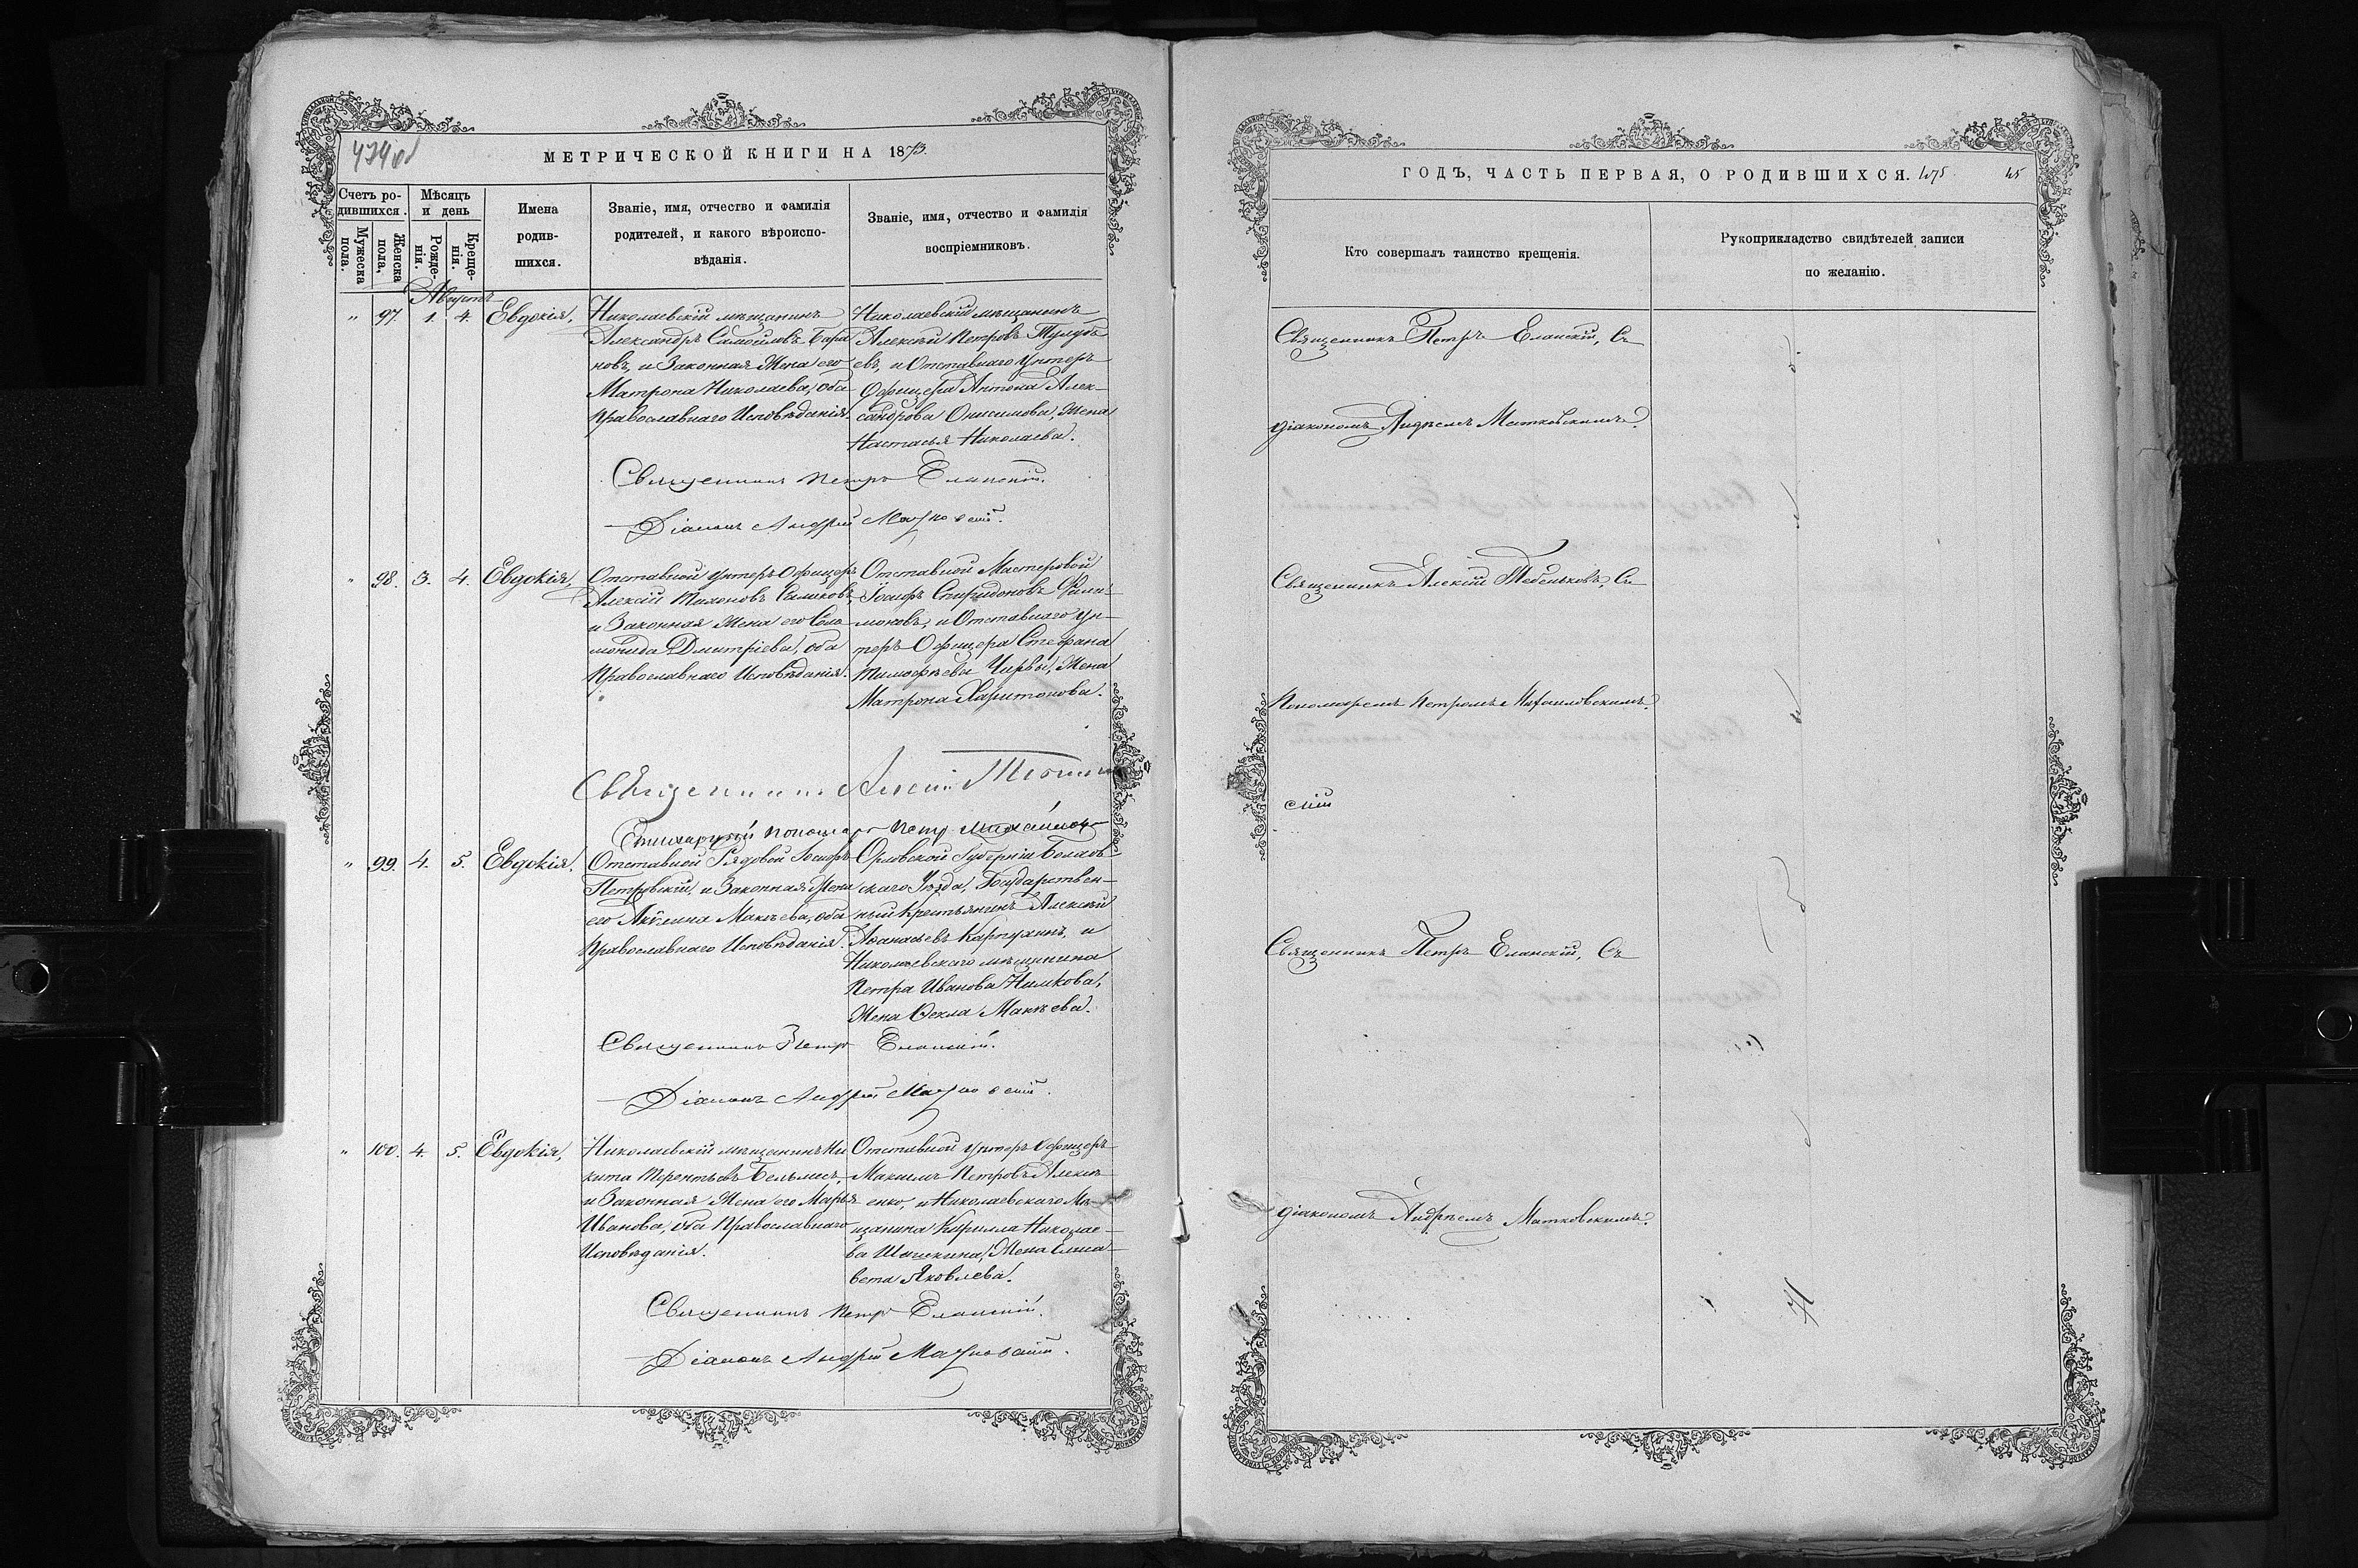 474об
МЕТРИЧЕСКОЙ КНИГИ НА 1873.
Счетъ родившихся.
Мужеска пола.
Женска пола,
Мѣсяцъ и день
Рожденія.
Крещенія.
Имена родившихся.
Званіе, имя, отчество и фамилія
родителей, и какого вѣроиспо-
вѣданія.
Званіе, имя, отчество и фамилія
воспріемниковъ.
Августъ
" 97. 1. 4. Евдокія,
Николаевскій мѣщанинъ
Александръ Самойловъ Бара
новъ, и Законная Жена его
Матрона Николаева, оба
Православнаго Исповѣданія.
Николаевскій мѣщанинъ
Алексѣй Петровъ
евъ, и Отставнаго Унтеръ
Офицера Антона Алек-
сандрова Онисимова, Жена
Настасья Николаева.
Священникъ Петръ Еланскій.
Діаконъ Андрей Матковскій.
" 98. 3. 4. Евдокія,
Отставной Унтеръ Офицеръ
Алексій Тихоновъ
и Законная Жена его Соло
монида Дмитріева, оба
Православнаго Исповѣданія.
Отставной Мастеровой
Іосифъ Спиридоновъ Фили-
моновъ, и Отставнаго Ун-
теръ Офицера Стефана
Тимофѣева Чирвы, Жена
Матрона Харитонова.
Священникъ Алексій
Стихарный Пономарь Петръ
" 99. 4. 5. Евдокія,
Отставной Рядовой Іосифъ
Петровскій, и Законная Жена
его Акилина Макѣева, оба
Православнаго Исповѣданія.
Орловской Губерніи Болхов-
скаго Уѣзда, Государствен-
ный Крестьянинъ Алексѣй
Аѳанасьевъ Карпухинъ, и
Николаевскаго мѣщанина
Петра Иванова
Жена Ѳекла Макѣева.
Священникъ Петръ Еланскій.
Діаконъ Андрей Матковскій.
" 100. 4. 5. Евдокія,
Николаевскій мѣщанинъ Ни
кита Терентьевъ Бельмесъ,
и Законная Жена его Марья
Иванова, оба Православнаго
Исповѣданія.
Отставной Унтеръ Офицеръ
Максимъ Петровъ Алексѣ
енко, и Николаевскаго Мѣ-
щанина Кирилла Николае-
ва Жена Елиса-
вета Яковлева.
Священникъ Петръ Еланскій.
Діаконъ Андрей Матковскій.
ГОДЪ, ЧАСТЬ ПЕРВАЯ, О РОДИВШИХСЯ. 475 45
Кто совершалъ таинство крещенія.
Рукоприкладство свидѣтелей записи
по желанію.
Священникъ Петръ Еланскій, Съ
діакономъ Андреемъ Матковскимъ.
Священникъ Алексій Тебеньковъ, Съ
Пономаремъ Петромъ Михайловскимъ.
скій
Священникъ Петръ Еланскій, Съ
діакономъ Андреемъ Матковскимъ.